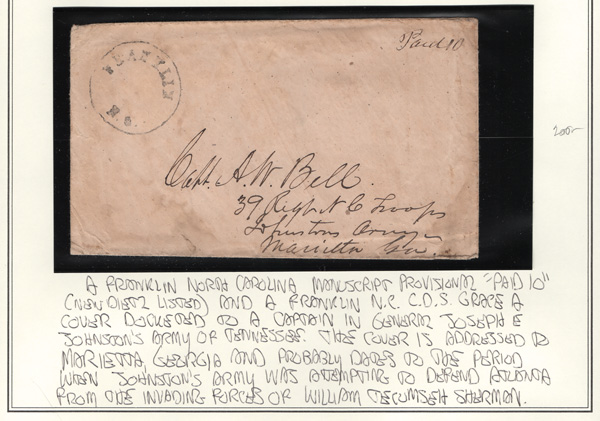 Paid 10
FRANKLIN
N.C.
Capt. A. W. Bell.
39 Regt N C Troops
Johnstons Army
Marietta Ga.
A FRANKLIN NORTH CAROLINA MANUSCRIPT PROVISIONAL "PAID 10"
(NEW DIETZ LISTED) AND A FRANKLIN N.C. C.D.S. GRACE A
COVER DOCKETED TO A CAPTAIN IN GENERAL JOSEPH E
JOHNSTON'S ARMY OF TENNESSEE. THE COVER IS ADDRESSED TO
MARIETTA, GEORGIA AND PROBABLY DATES TO THE PERIOD
WHEN JOHNSTON'S ARMY WAS ATTEMPTING TO DEFEND ATLANTA
FROM THE INVADING FORCES OF WILLIAM TECUMSEH SHERMAN.